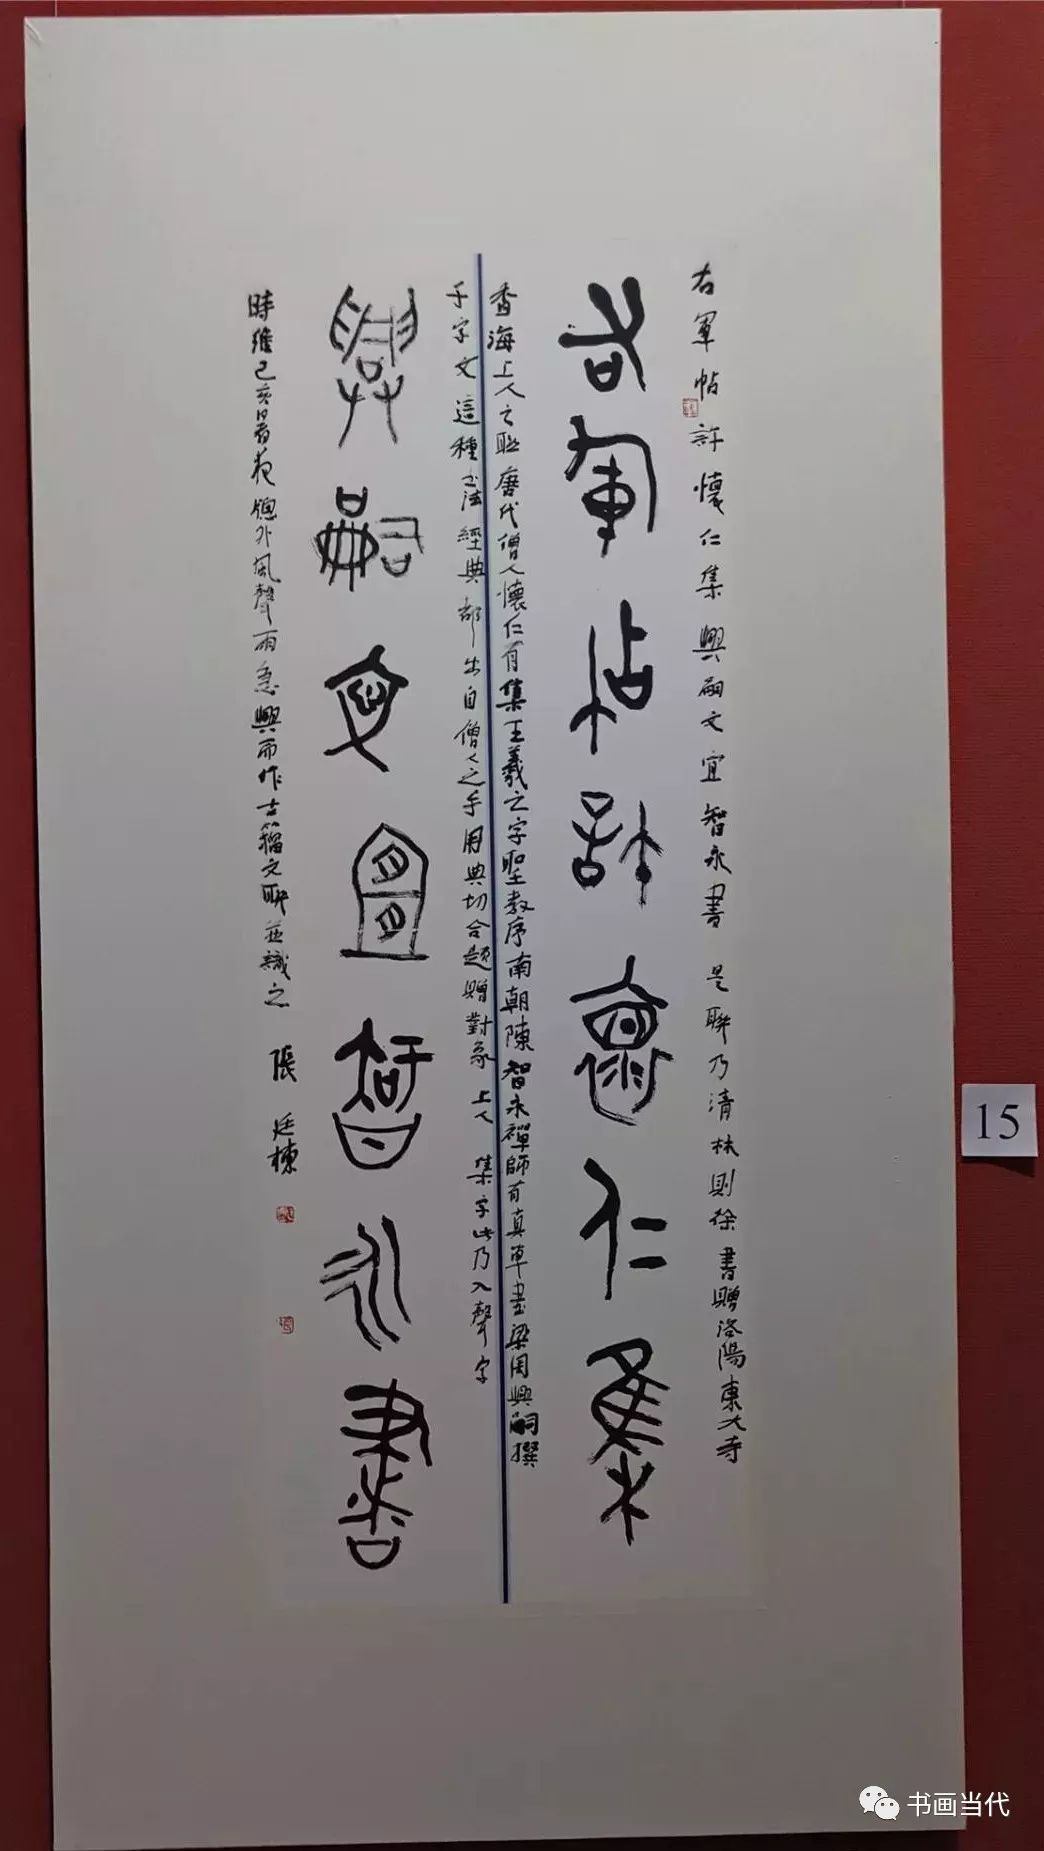 右軍帖許懷仁集興嗣文宜智永書是聯乃清林則徐書贈洛陽東大寺
右軍帖許懷仁集
香海上人之聯唐代僧人懷仁有集王羲之字聖教序南朝陳智永禪師有真草書梁周興嗣撰
千字文這種書法經典都出自僧人之手用典切合題贈對象上人集字此乃入聲字
興嗣文宜智永書
時維己亥暑夜窗外風聲雨急興而作古籀文聯並識之張廷棟
15
书画当代